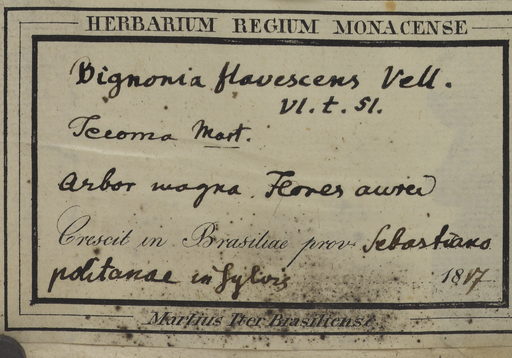 HERBARIUM REGIUM MONACENSE
Bignonia flavescens Vell.
VI. t. 51.
Tecoma Mart.
Arbor magna. Flores aurei
Crescit in Brasiliae prov. Sebastiano
politanae in sylvis 1817
Martius Iter Brasiliense